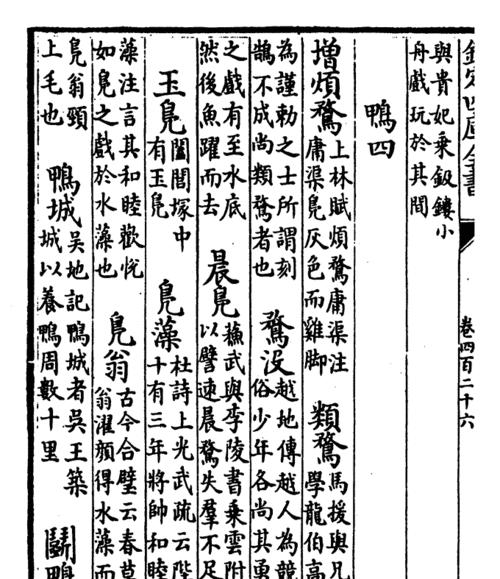 欽定四庫全書
卷四百二十六
與貴妃乘釵鏤小
舟戲玩於其間
鴨四
增煩鶩
上林賦煩鶩庸渠注
庸渠鳧灰色而雞脚
類鶩
馬援與兄
學龍伯高
為謹勅之士所謂刻
鵠不成尚類鶩者也
鶩没
越地傳越人為競
俗少年各尚其勇
之戲有至水底
然後魚躍而去
晨鳧
蘓武與李陵書乘雲附
以譬速晨鶩失羣不足
玉鳧
闔閭塚中
有玉鳧
鳧藻
杜詩上光武疏云陛
十有三年將帥和睦
藻注言其和睦歡悅
如鳧之戲於水藻也
鳧翁
古今合璧云春草
翁濯顔得水藻而
鳧翁頸
上毛也
鴨城
吳地記鴨城者吳王築
城以養鴨周數十里
鬭鴨